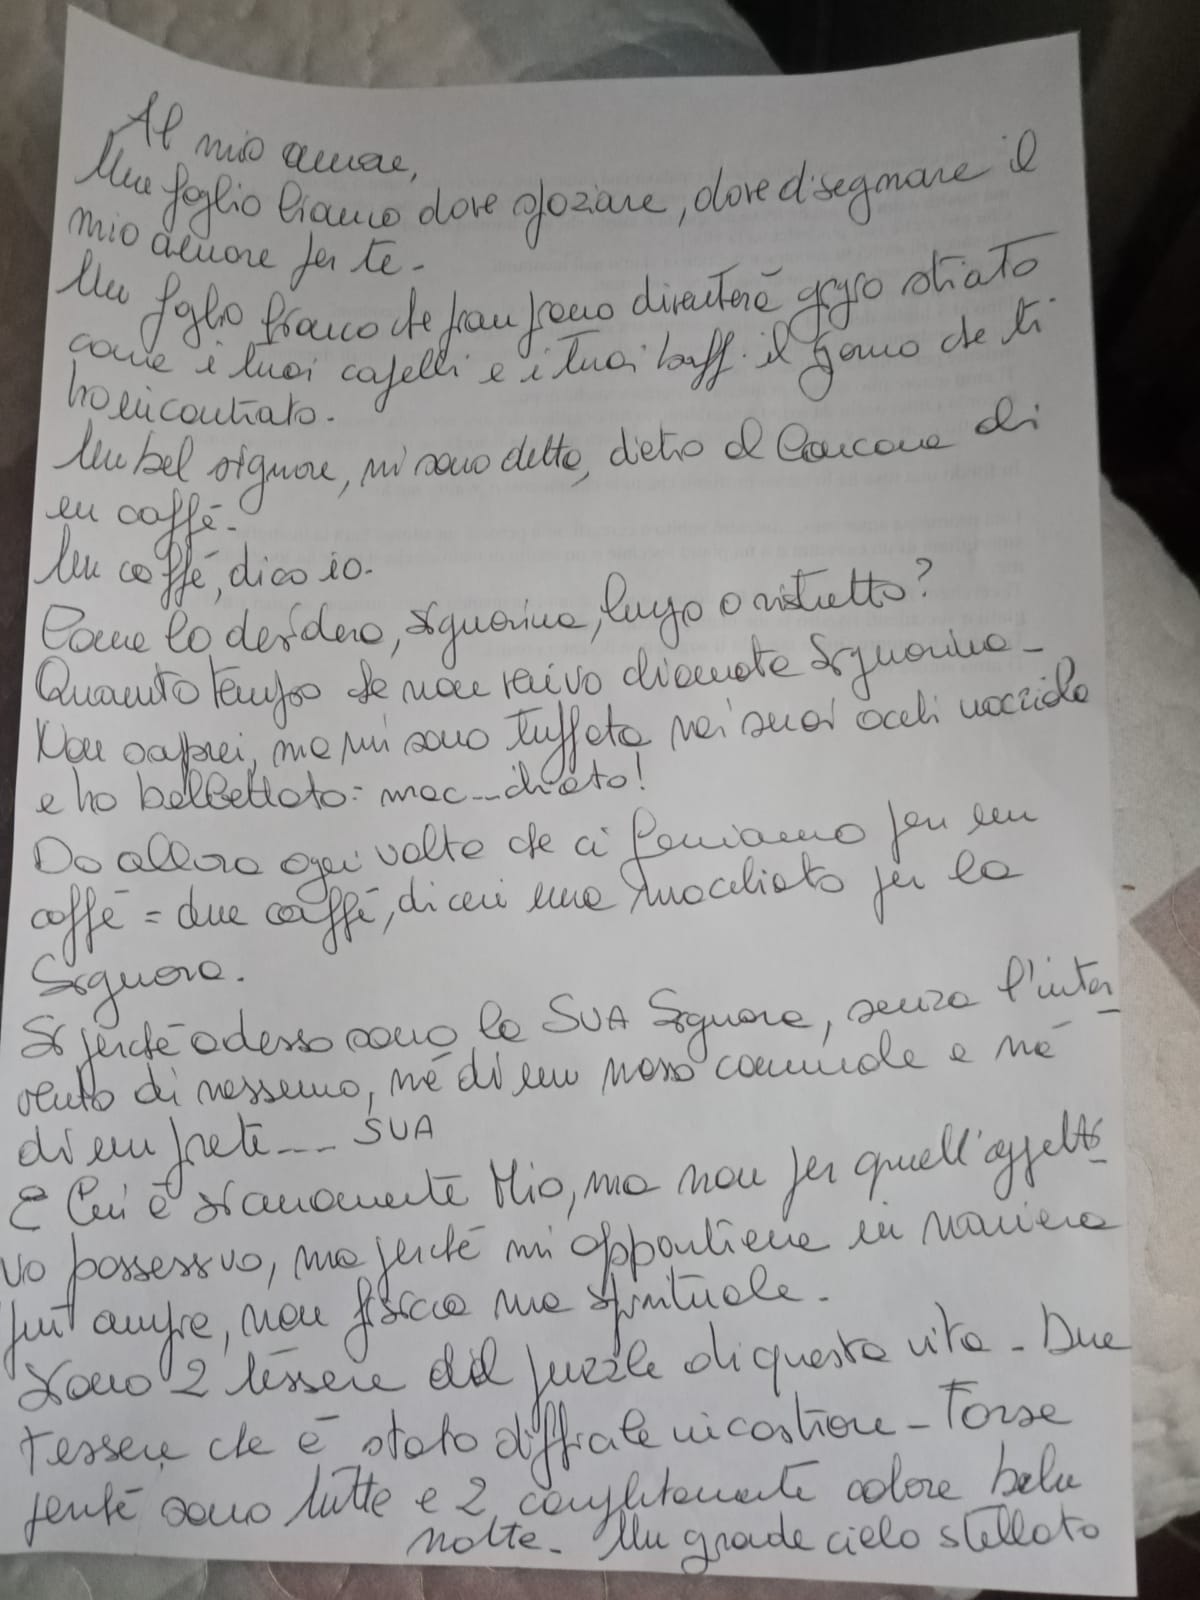 Al mio amore,
Un foglio bianco dove spaziare, dove disegnare il
mio amore per te -
Un foglio bianco che pian piano diventerà grigio striato
come i tuoi capelli e i tuoi baffi il giorno che ti
ho incontrato.
Un bel signore, mi sono detta, dietro al bancone di
un caffè.
Un caffè, dico io.
Come lo desidera, signorina, lungo o ristretto?
Quanto tempo che non venivo chiamata Signorina -
Non saprei, ma mi sono tuffata nei suoi occhi nocciola
e ho balbettato: mac...chiato!
Da allora ogni volta che ci fermiamo per un
caffè = due caffè, di cui uno macchiato per la
Signora.
Sì perché adesso sono la SUA Signora, senza l'inter
vento di nessuno, né di un messo comunale e né
di un prete... SUA
E Lui è sicuramente Mio, ma non per quell'aggetti
vo possessivo, ma perché mi appartiene in maniera
più ampia, non fisica ma spirituale.
Siamo 2 tessere del puzzle di questa vita - Due
tessere che è stato difficile incastrare - Forse
perché sono tutte e 2 completamente colore belu
notte. Un grade cielo stellato